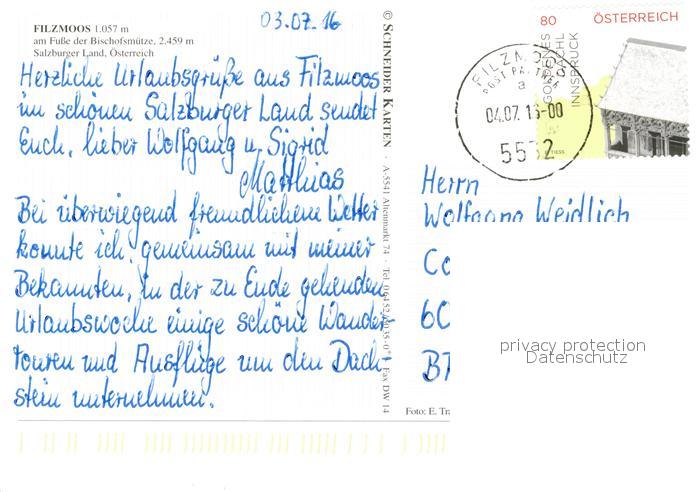 03.07.16
FILZMOOS 1.057 m
am Fuße der Bischofsmütze, 2.459 m
Salzburger Land, Österreich
Herzliche Urlaubsgrüße aus Filzmoos
im schönen Salzburger Land sendet
Euch, lieber Wolfgang u. Sigrid
Matthias
Bei überwiegend freundlichem Wetter
konnte ich, gemeinsam mit meiner
Bekannten, in der zu Ende gehenden
Urlaubswoche einige schöne Wander-
touren und Ausflüge um den Dach-
stein unternehmen.
© SCHNEIDER KARTEN · A-5541 Altenmarkt 74 · Tel. Fax DW 14
Foto: E. Tra
80 ÖSTERREICH
GOLDENES
DACHL
INNSBRUCK
FILZMOOS
POST PARTNER
a
04.07.16-00
5532
Herrn
Wolfgang Weidlich
Co
60
BT
privacy protection
Datenschutz